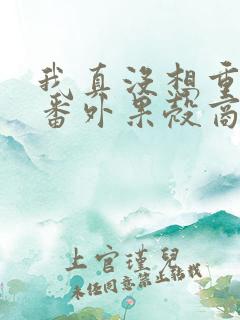 我真没想重
番外果殼商
上官瑾兒
未经同意禁止转载